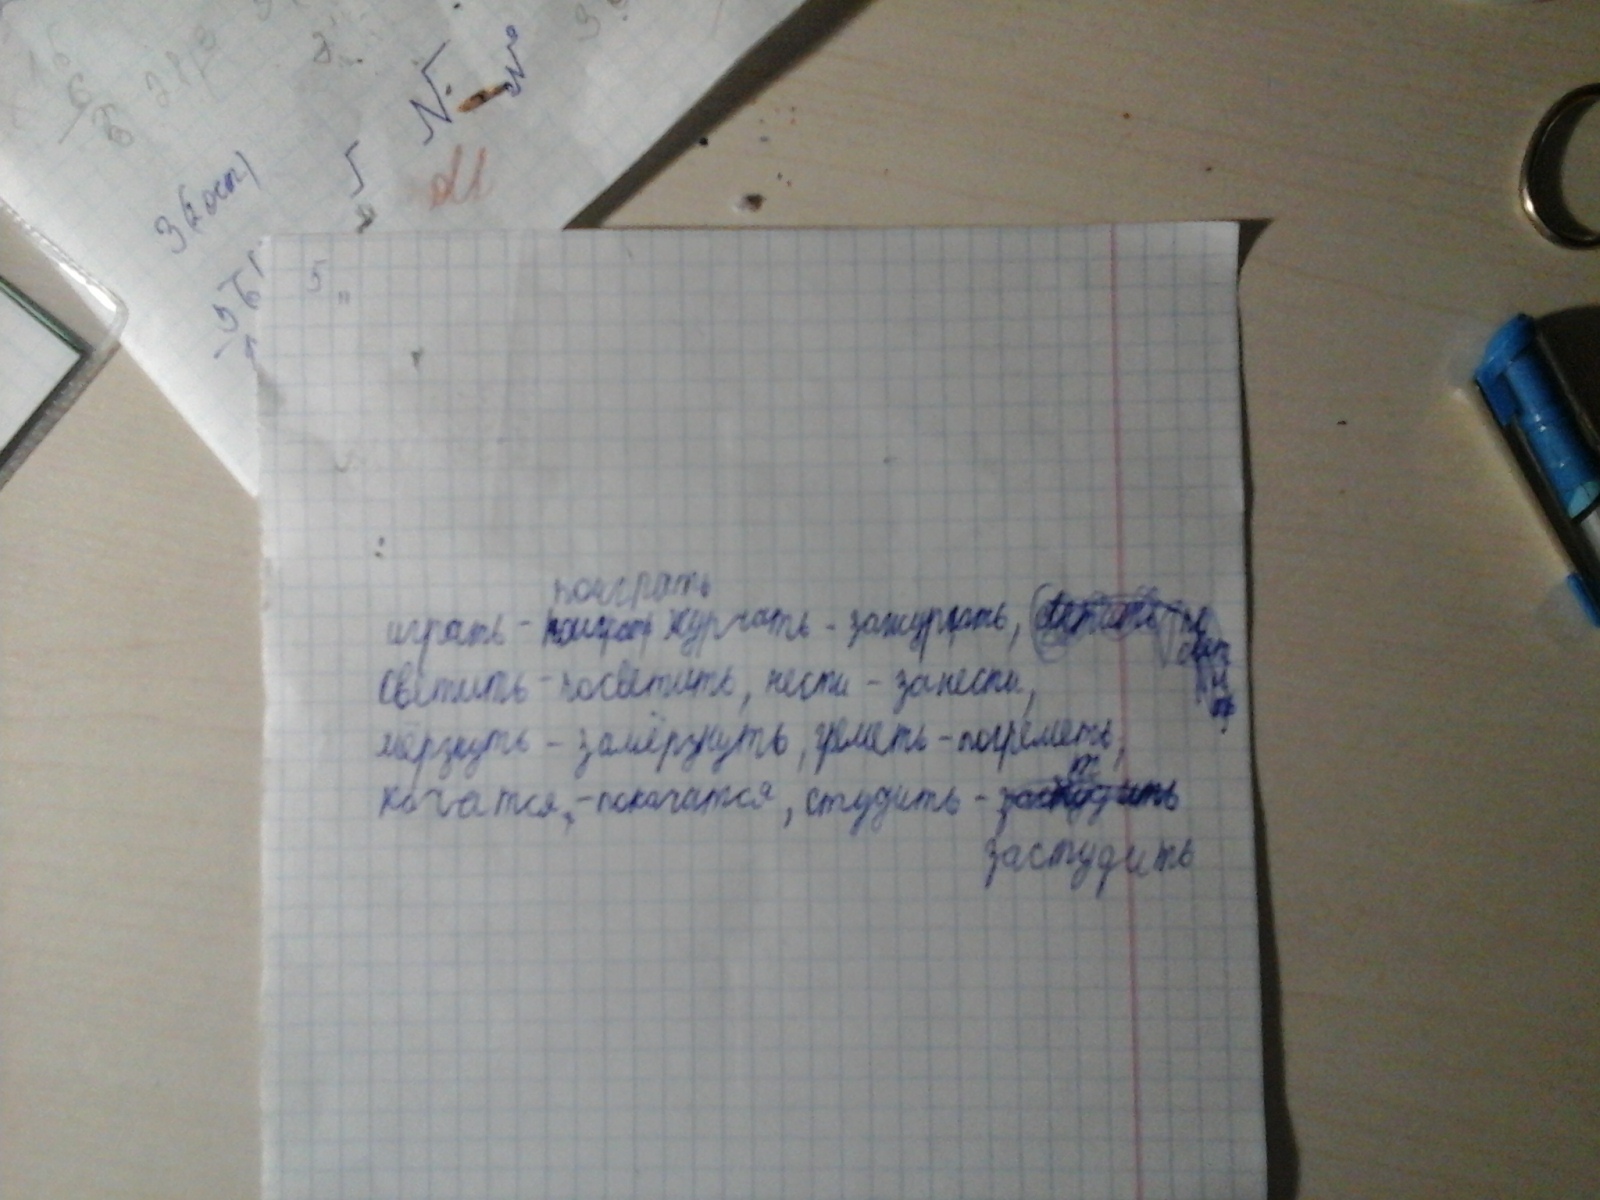 3 (ост)
5
поиграть
играть - поиграть журчать - зажурчать,
светить - посветить, нести - занести,
мёрзнуть - замёрзнуть, греметь - погреметь,
качатся, - покачатся, студить -
застудить